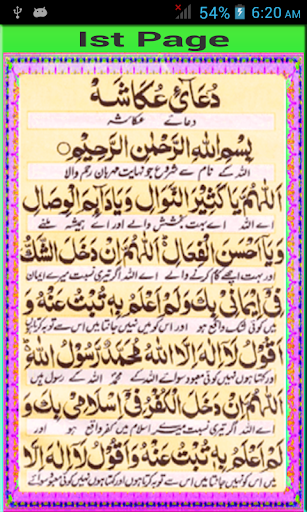 54% 6:20 AM
Ist Page
دُعَائے عُکاشہ
دعائے عکاشہ
بِسْمِ اللهِ الرَّحْمٰنِ الرَّحِيْمِ
اللہ کے نام سے شروع جو نہایت مہربان رحم والا
اَللّٰهُمَّ يَا كَثِيْرَ النَّوَالِ وَيَا دَآئِمَ الْوِصَالِ
اے اللہ اے بہت بخشش والے اور اے ہمیشہ ملنے
وَيَا حُسْنَ الْفِعَالِ اَللّٰهُمَّ اِنْ دَخَلَ الشَّكُّ
اور بہت اچھے کام کرنے والے اے اللہ اگر تیری نسبت میرے ایمان
فِيْ اِيْمَانِيْ بِكَ وَلَمْ اَعْلَمْ بِهٖ تُبْتُ عَنْهُ وَ
میں کوئی شک واقع ہو اور میں اس کو نہیں جانتا میں اس سے توبہ کرتا ہوں
اَقُوْلُ لَا اِلٰهَ اِلَّا اللهُ مُحَمَّدٌ رَّسُوْلُ اللهِ
اور کہتا ہوں کوئی معبود نہیں سوائے اللہ کے محمد اللہ کے رسول ہیں
اَللّٰهُمَّ اِنْ دَخَلَ الْكُفْرُ فِيْ اِسْلَامِيْ بِكَ وَ
اے اللہ اگر تیری نسبت میرے اسلام میں کفر واقع ہو اور
لَمْ اَعْلَمْ بِهٖ تُبْتُ عَنْهُ وَاَقُوْلُ لَا اِلٰهَ اِلَّا
میں اس کو نہیں جانتا میں اس سے توبہ کرتا ہوں اور کہتا ہوں نہیں کوئی معبود سوائے